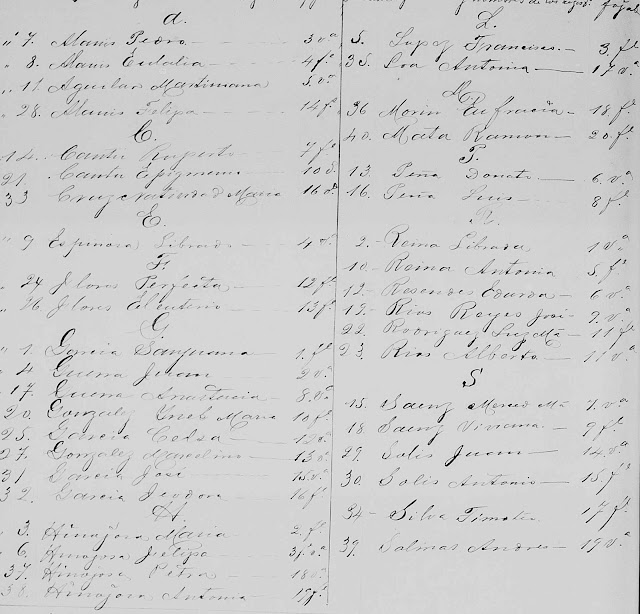 A.
" 7. Alanis Pedro 3 va
" 8. Alanis Eudalia 4 fe
" 11 Aguilar Maximiana 5 va
" 28. Alanis Felipa 14 fe
C.
14. Cantu Ruperto 7 fe
21 Cantu Epigmenio 10
33 Cruz Natividad Maria 16
E.
" 9 Espinosa Librado 4 va
F.
" 24 Flores Perfecta 12 fe
" 26 Flores Eleuterio 13 fe
G
" 1. Garcia Sanjuana 1 fe
" 4 Guerra Juan 2 va
" 17 Guerra Anastacia 8 va
" 20. Gonzalez Ineb Maria 10 fe
25. Garcia Celsa 12 va
27. Gonzalez Marcelino 13 va
31 Garcia José 15 va
32. Garcia Teodora 16 fe
H.
" 3. Hinojosa Maria 2 fe
" 6. Hinojosa Felipa 3 va
37. Hinojosa Petra 18 va
38. Hinojosa Antonia 19 fe
L.
5. Lopez Francisco 3 fe
35. Loa Antonia 17 va
M
36 Morin Eufracia 18 fe
40. Mata Ramon 20 fe
P.
13. Peña Donato 6 va
16. Peña Luis 8 fe
R.
2. Reina Librada 1 va
10. Reina Antonia 5 fe
12. Resendes Eduarda 6 va
19. Rios Reyes José 9 va
22. Rodriguez Luz Ma 11 fe
23. Rios Alberto 11 va
S
15. Saenz Merced Ma 7 va
18 Saenz Viviana 9 fe
29. Solis Juan 14 va
30. Solis Antonio 15 fe
34 Silva Timoteo 17 fe
39. Salinas Andres 19 va